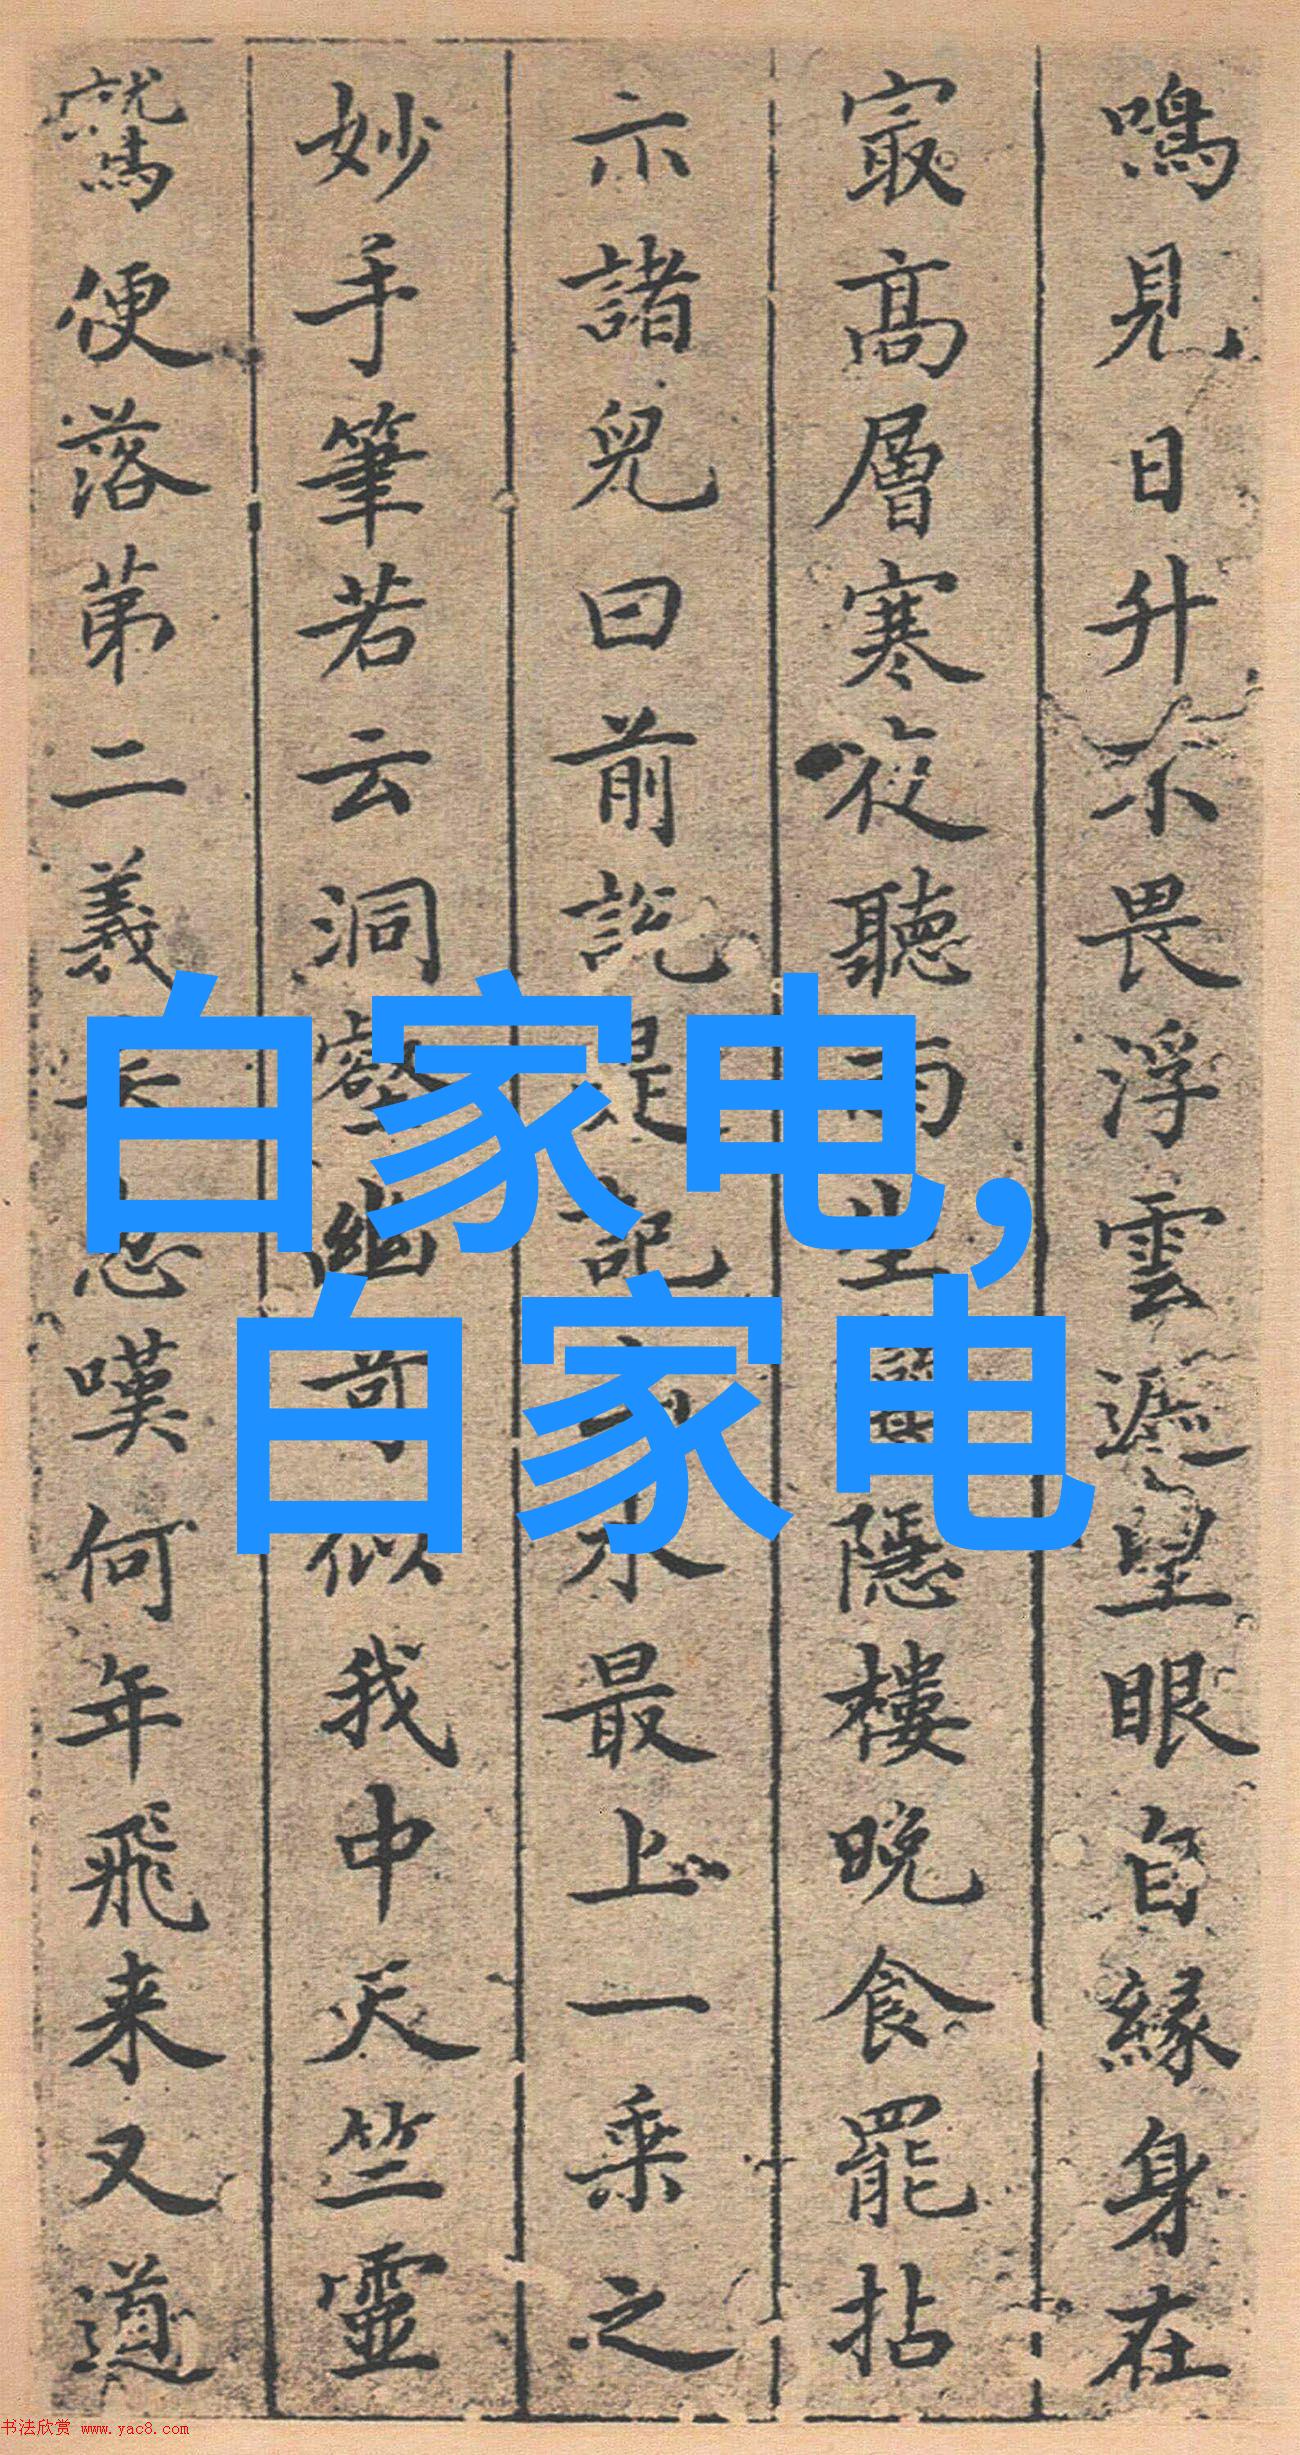 鳴見日升不畏浮雲遮望眼自緣身在
㝡高層寒夜聽雨坐隱樓晚食罷拈
示諸兒曰前説是記水最上一乘之
妙手筆若云洞壑幽奇似我中天竺靈
鷲便落第二義忽嘆何年飛来又道
白家电,
自家电
书法欣赏 www.yac8.com